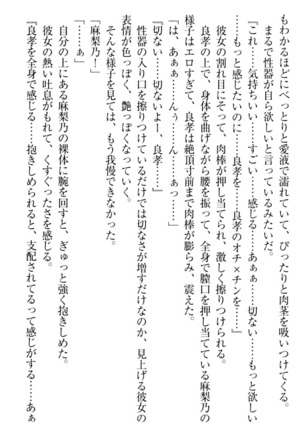 もわかるほどにべっとりと愛液で濡れていて、ぴったりと肉茎に吸いつく。
まるで性器が自ら欲しいと言っているみたいだ。
「これ……気持ちいい……すごい……感じる……あぁぁ……切ない……もっと欲しい
……もっと感じたいのに……良孝を……良孝のオチ×チンを……」
彼女の割れ目にそって、肉棒が押し当てられ、激しく擦りつけられる。
良孝の上で、身体を曲げながら腰を振って、全身で膣口を押し当てている麻梨乃の
様子はエロすぎて、良孝は絶頂寸前まで肉棒が膨らみ、震えた。
「は、あぁぁ……んぅ……ん　ぁっ……」
「切ない……切ないよ、良孝……」
性器の入り口を擦りつけているだけでは切なさが増すだけなのか、見上げる彼女の
表情が色っぽく、艶っぽくなっていく。
そんな様子を見ては、もう我慢できなかった。
「麻梨乃！」
自分の上にある麻梨乃の裸体に腕を回すと、ぎゅっと強く抱きしめた。
彼女の熱い吐息がもれて、くすぐったさを感じる。
「良孝を全身で感じる……抱きしめられると、支配されてるって感じがする……あぁ